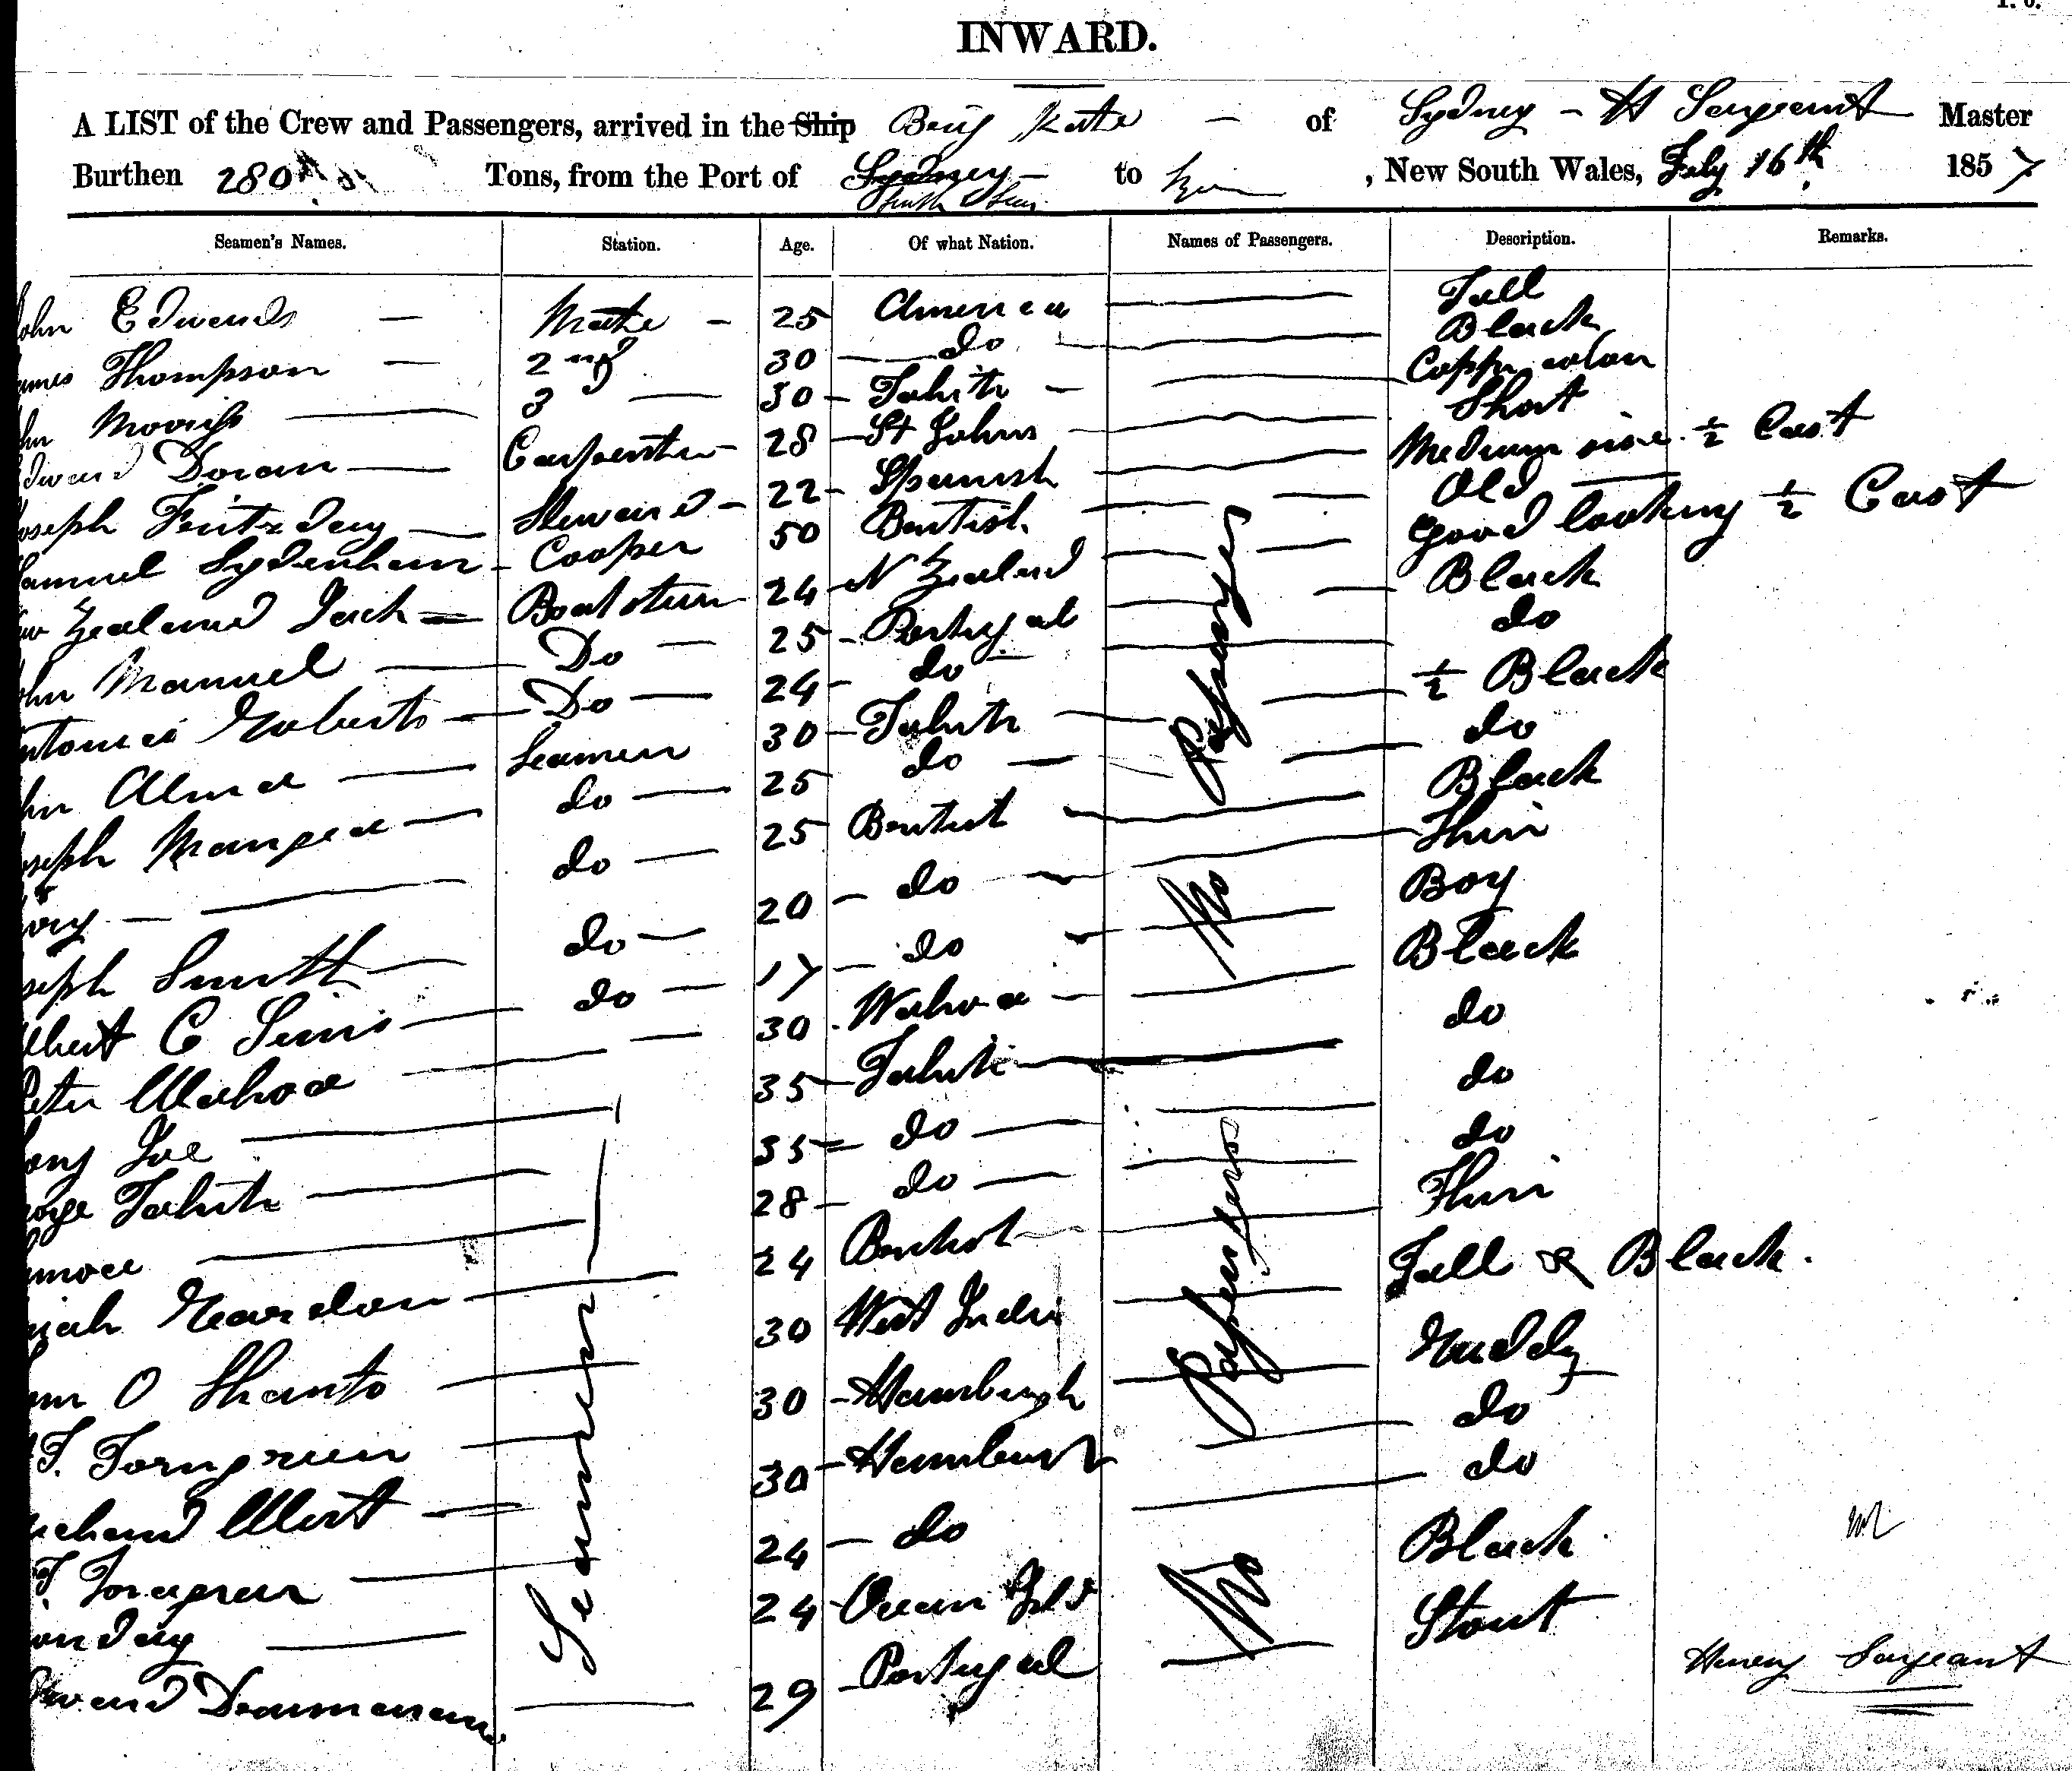 INWARD.
A LIST of the Crew and Passengers, arrived in the Ship Brig Kate – of Sydney – H Sargeant Master
Burthen 280 Tons, from the Port of Sydney to , New South Wales, July 16th 1857
South Seas
Seamen's Names. Station. Age. Of what Nation. Names of Passengers. Description. Remarks.
ohn Edwards — Mate – 25 America Tall
ames Thompson — 2nd 30 do Black
hn Morriss — 3 — 30 Tahiti Copper colour
dward Doran — Carpenter 28 St Johns Short
oseph Fritz day — Steward 22 Spanish Medium size ½ Cast
amuel Sydenham Cooper 50 British Old
ew Zealand Jack Boatsteer 24 N Zealand Good looking ½ Cast
ohn Manuel Do 25 Portugal Black
ntonei Roberts Do 24 do do
hn Alma Seamen 30 Tahiti ½ Black
oseph Mangea do 25 do do
ory do 25 British Black
seph Smith do 20 do Thin
lbert C Sims do 17 do Boy
Peter Wahoa 30 Wahoa Black
ong Joe 35 Tahiti do
orge Tahiti 35 do do
28 do do
iah Reardon 24 British Thin
am O Shanto 30 West Indies Tall & Black.
T. Torngreen 30 Hamburgh Ruddy
ichard West 30 Hamburgh do
T. Torngreen 24 do do
onday 24 Ocean Isld Black
dward 29 Portugal Stout
Seamen
No Passengers
No Passengers
Henry Sargeant